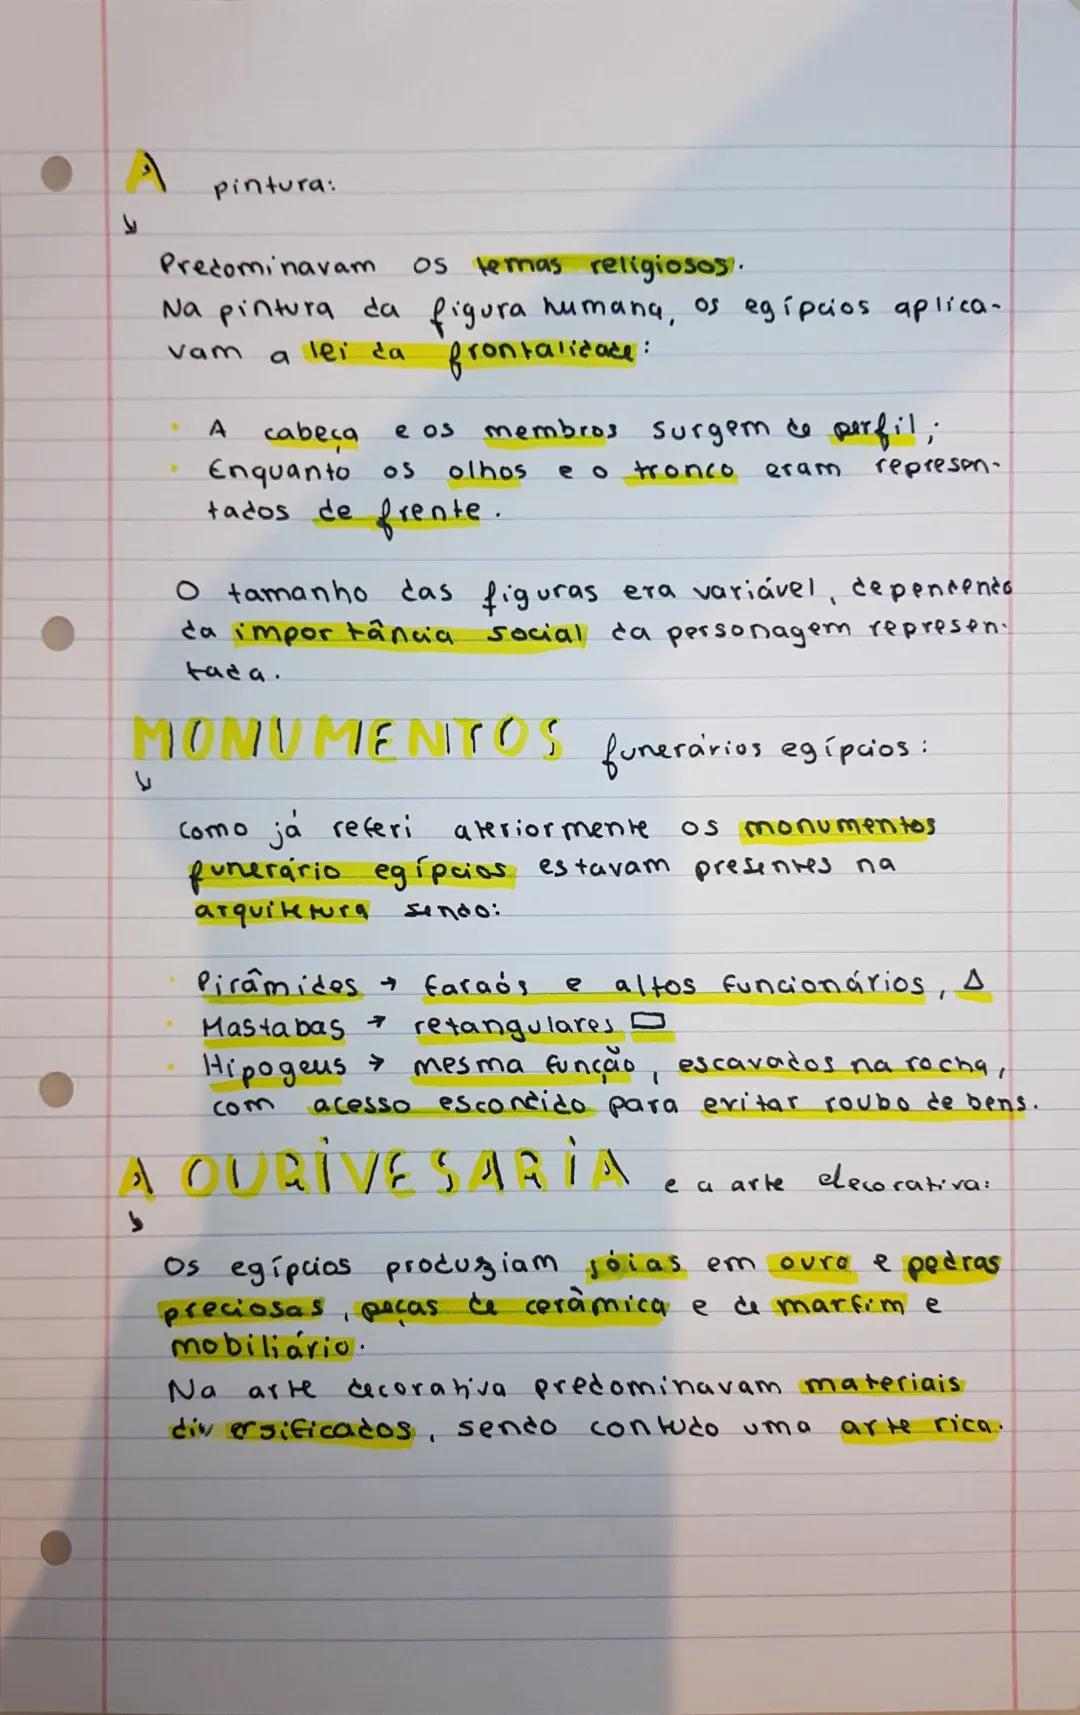 A pintura:
Predominavam os temas religiosos.
Na pintura da figura humana, os egípcios aplica-
vam a lei da frontalidade:
• A cabeça e os membros surgem de perfil;
• Enquanto os olhos e o tronco eram represen-
tados de frente.
O tamanho das figuras era variável, dependendo
da importância social da personagem represen-
tada.
MONUMENTOS funerários egípcios:
Como já referi ateriormente os monumentos
funerário egípcios estavam presentes na
arquitetura sendo:
• Pirâmides → faraós e altos funcionários, △
• Mastabas → retangulares ▭
• Hipogeus → mesma função, escavados na rocha,
com acesso escondido para evitar roubo de bens.
A OURIVESARIA e a arte decorativa:
Os egípcios produziam jóias em ouro e pedras
preciosas, peças de cerâmica e de marfim e
mobiliário.
Na arte decorativa predominavam materiais
diversificados, sendo contudo uma arte rica.